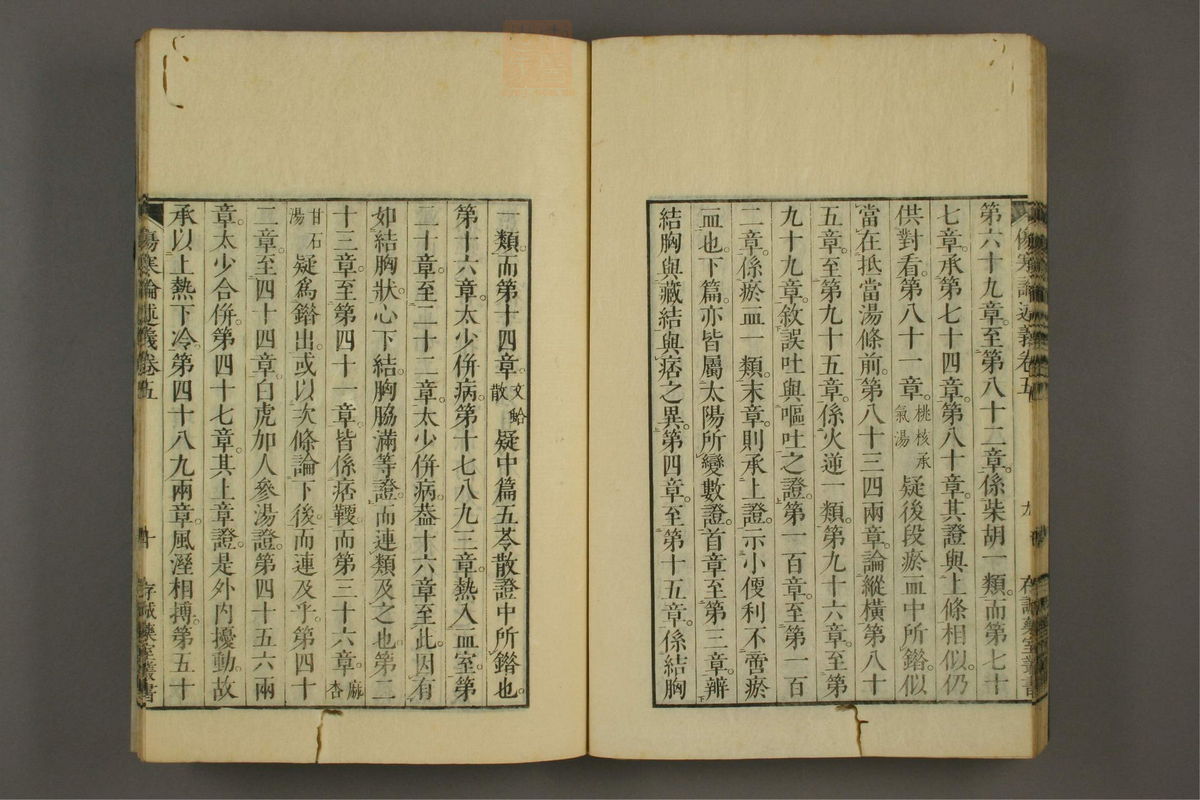 傷寒論述義卷五 九 存誠藥室叢書
第六十九章。至第八十二章。係柴胡一類。而第七十
七章。承第七十四章。第八十章。其證與上條相似。仍
供對看。第八十一章。桃核承氣湯疑後段瘀血中所錯。似
當在抵當湯條前。第八十三四兩章。論縱橫。第八十
五章。至第九十五章。係火逆一類。第九十六章。至第
九十九章。敘誤吐與嘔吐之證。第一百章。至第一百
二章。係瘀血一類。末章則承上證。示小便利不啻瘀
血也。下篇。亦皆屬太陽所變數證。首章至第三章。辨
結胸與藏結與痞之異。第四章。至第十五章。係結胸
一類。而第十四章。文蛤散疑中篇五苓散證中所錯也。
第十六章。太少併病。第十七八九三章。熱入血室。第
二十章。至二十二章。太少併病。葢十六章至此。因有
如結胸狀。心下結。胸脇滿等證。而連類及之也。第二
十三章。至第四十一章。皆係痞鞕。而第三十六章。麻杏
甘石湯疑爲錯出。或以次條論下後。而連及乎。第四十
二章。至四十四章。白虎加人參湯證。第四十五六兩
章。太少合併。第四十七章。其上章證。是外內擾動。故
承以上熱下冷。第四十八九兩章。風溼相搏。第五十
傷寒論述義卷五 十 存誠藥室叢書